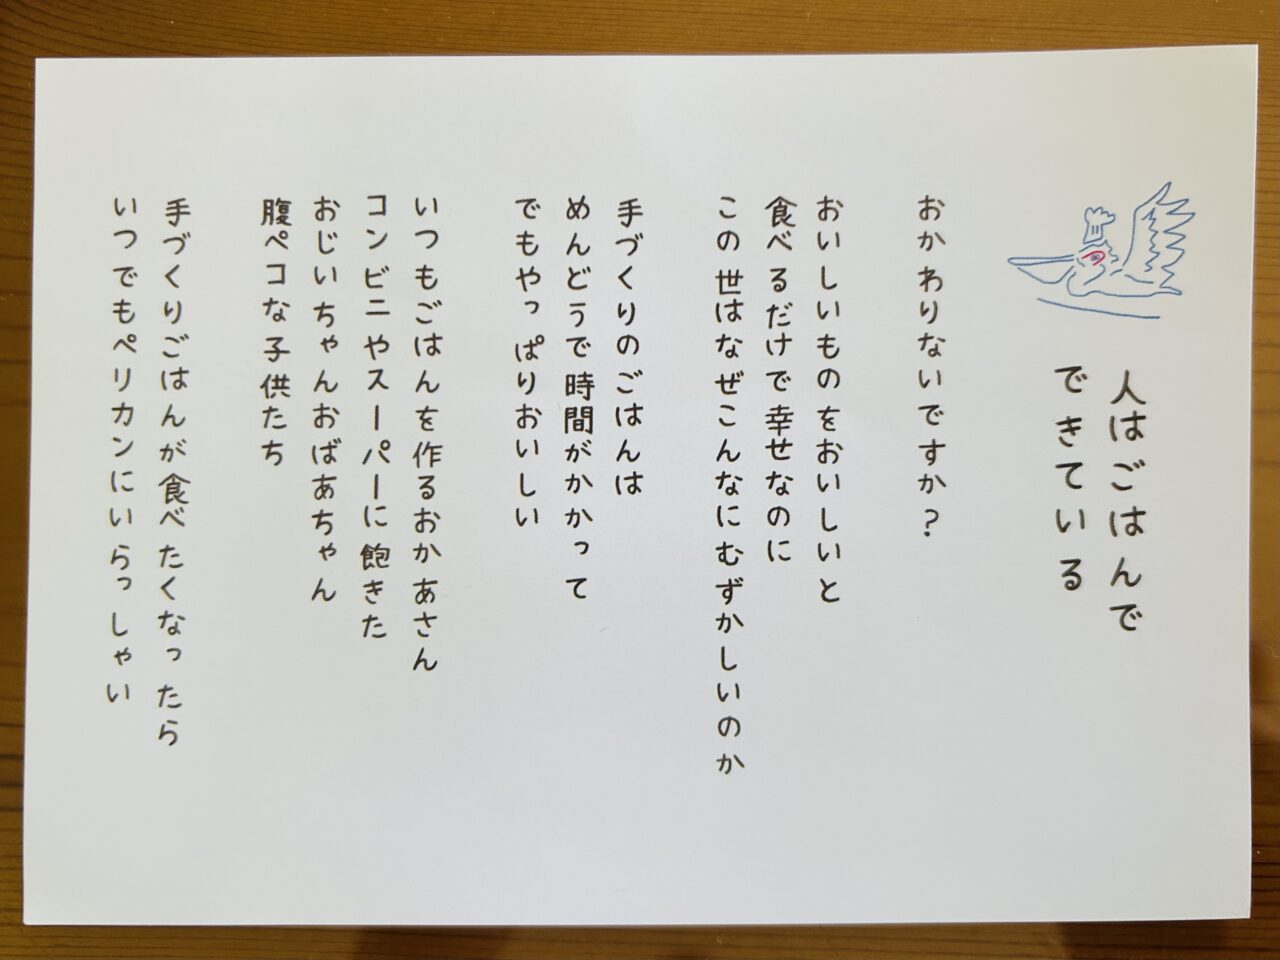 人はごはんで
できている
おかわりないですか?
おいしいものをおいしいと
食べるだけで幸せなのに
この世はなぜこんなにむずかしいのか
手づくりのごはんは
めんどうで時間がかかって
でもやっぱりおいしい
いつもごはんを作るおかあさん
コンビニやスーパーに飽きた
おじいちゃんおばあちゃん
腹ペコな子供たち
手づくりごはんが食べたくなったら
いつでもペリカンにいらっしゃい